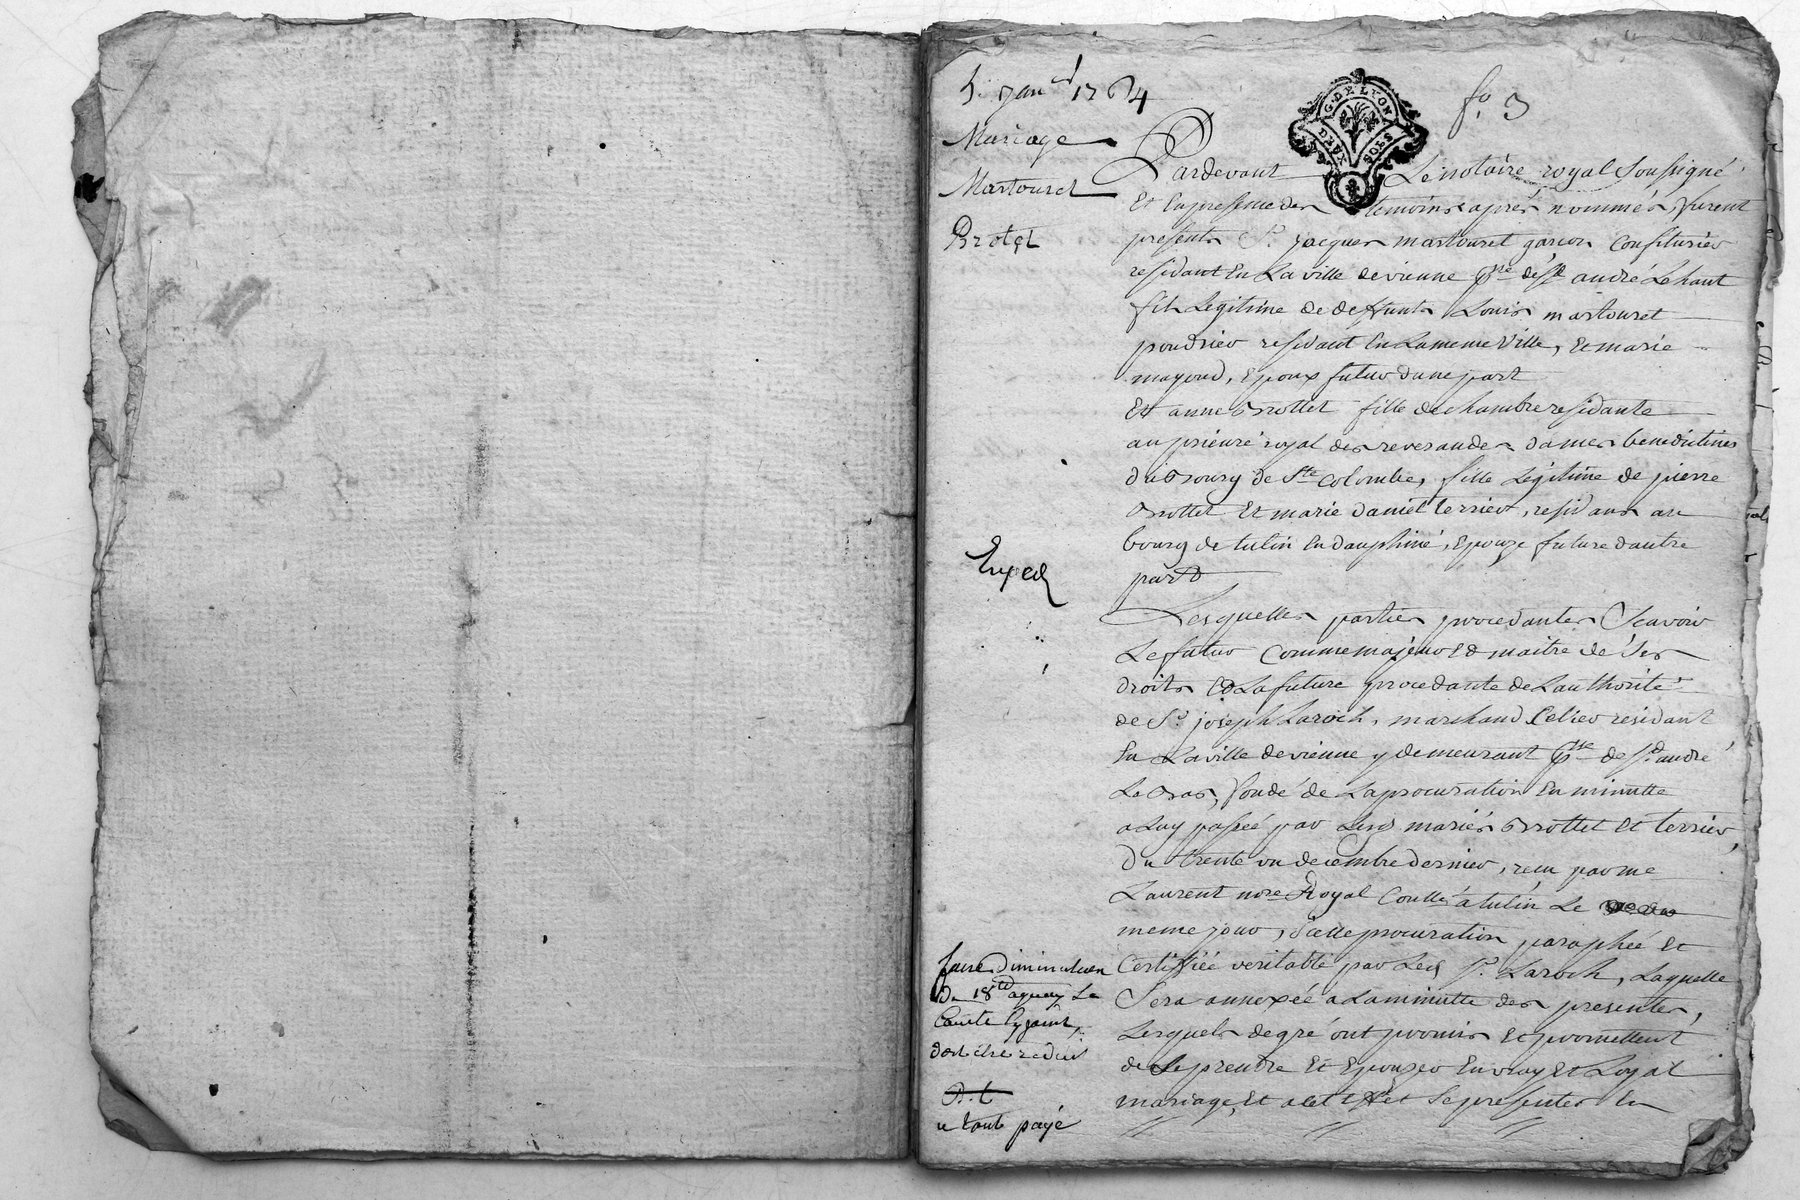 5. janer 1764
fo. 3
G. DE LYON
DEUX SOLS
Mariage
Martouret
Brotet
Pardevant Le notaire royal soussigné
Et En presence des temoins aprés nommés, furent
presents Sr. jacques martouret garcon confiturier
residant En La ville de vienne psse de st andré Le haut
fils Legitime de deffunts Louis martouret
poudrier residant En La meme Ville, Et marie
mayoud, Epoux futur dune part
Et anne Brottet fille de chambre residante
au prieuré royal des reverandes dames benedictines
du Bourg de Ste colombe, fille Legitime de pierre
Brottet Et marie daniel terrier, residans au
bourg de tulin En dauphiné, Epouze future dautre
part
Exped
Lesquelles parties procedantes Scavoir
Le futur comme majeur Et maitre de Ses
droits Et La future procedante de Lauthorité
de Sr. joseph Laroch, marchand Celier residant
En La ville de vienne y demeurant psse de st. andré
Le Bas, fondé de La procuration En minutte
a Luy passée par Lesd mariés Brottet Et terrier,
du trente un decembre dernier, recu par me
Laurent nore Royal Conllé a tulin Le
meme jour, d'icelle procuration paraphée et
Certiffiée veritable par Led Sr. Laroch, Laquelle
Sera annexée a La minutte des presentes,
Lesquels de gré ont promis Et promettent
de Se prendre Et Epouzer En vray Et Loyal
mariage, Et a cet Effet Se presenter En
faire diminution
Du 18
doit etre reduit
payé